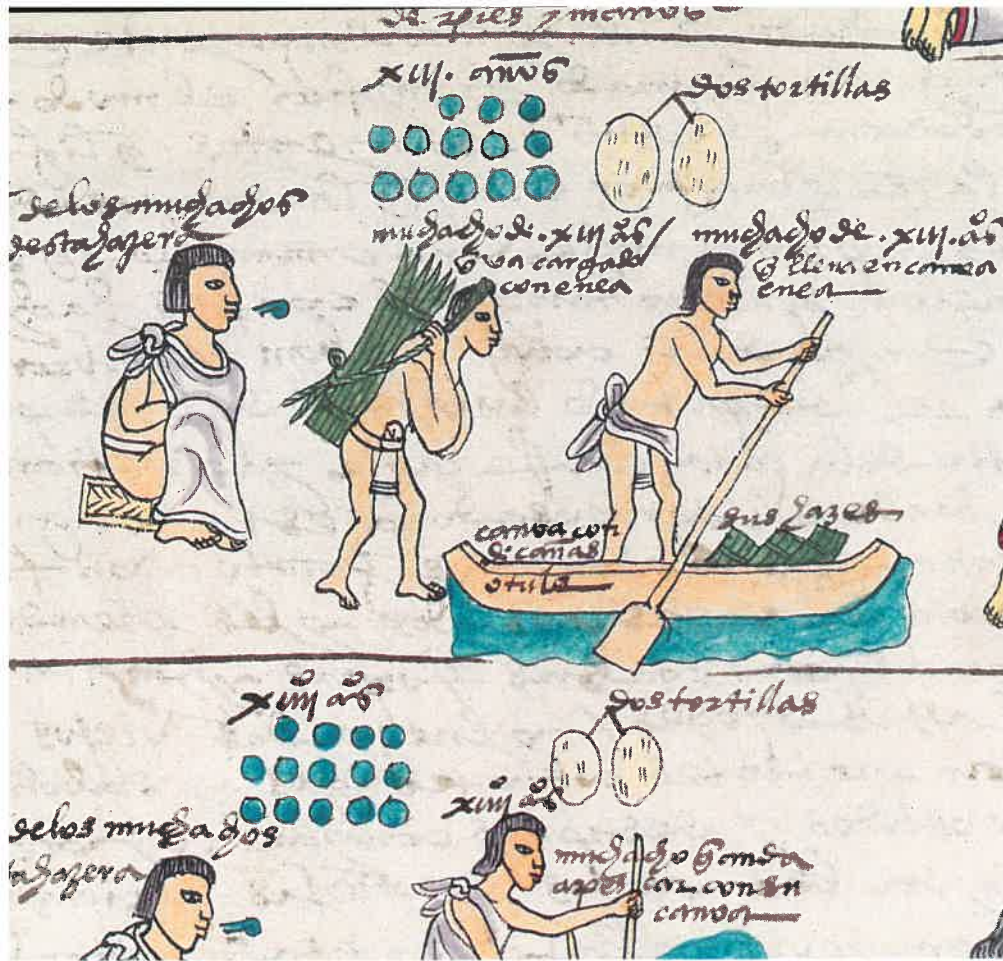 de pies y manos
xiij. años
dos tortillas
de los muchachos
desta hazera
muchacho de .xiij as
q va cargado
con enea
muchacho de .xiij. as
q lleva en canoa
enea
canoa con
de cañas
o tule
sus hazes
xiiij as
dos tortillas
de los muchachos
ta hazera
xiiij as
muchacho q anda
a pescar con su
canoa